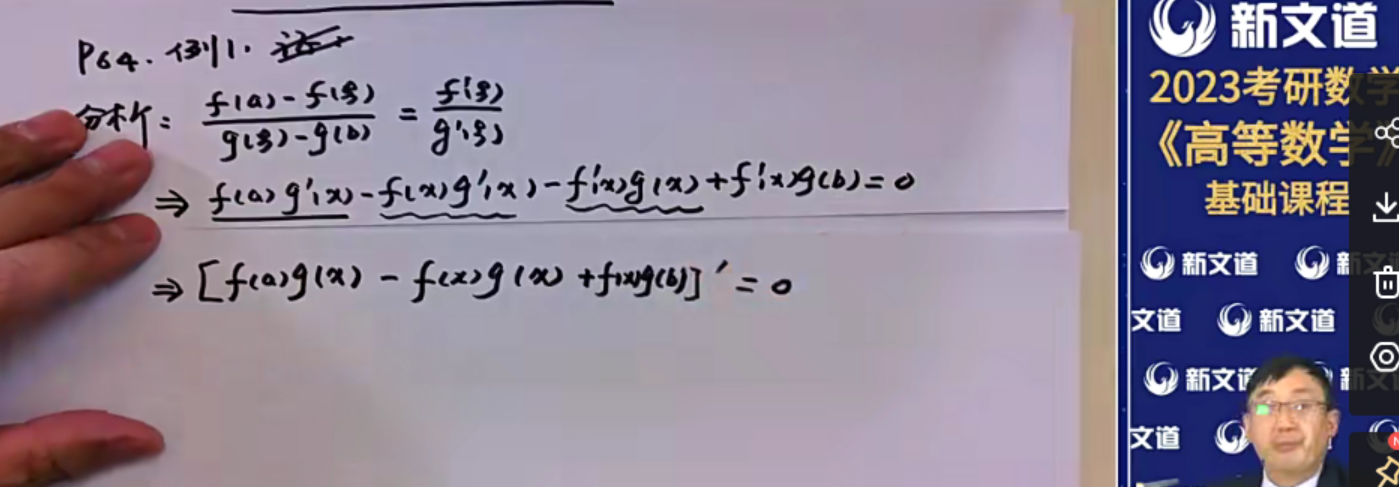 P64. 例1. 证
分析: \frac{f(a)-f(ξ)}{g(ξ)-g(b)} = \frac{f'(ξ)}{g'(ξ)}
⇒ f(a)g'(x)-f(x)g'(x)-f'(x)g(x)+f'(x)g(b)=0
⇒ [f(a)g(x) - f(x)g(x) +f(x)g(b)]' = 0
新文道
2023考研数学
《高等数学》
基础课程
新文道 新文
文道 新文道
新文道 新
文道